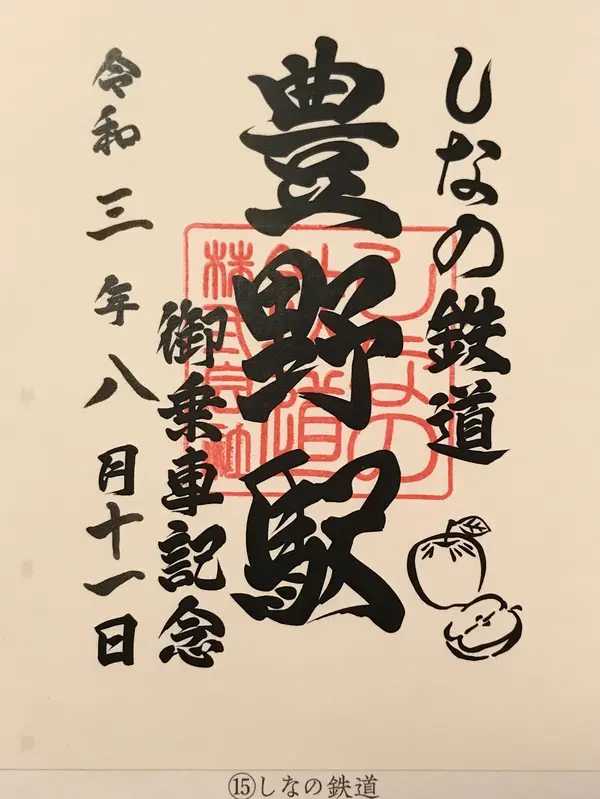 しなの鉄道
豊野駅
しなの鉄道株式会社
御乗車記念
令和三年八月十一日
⑮しなの鉄道